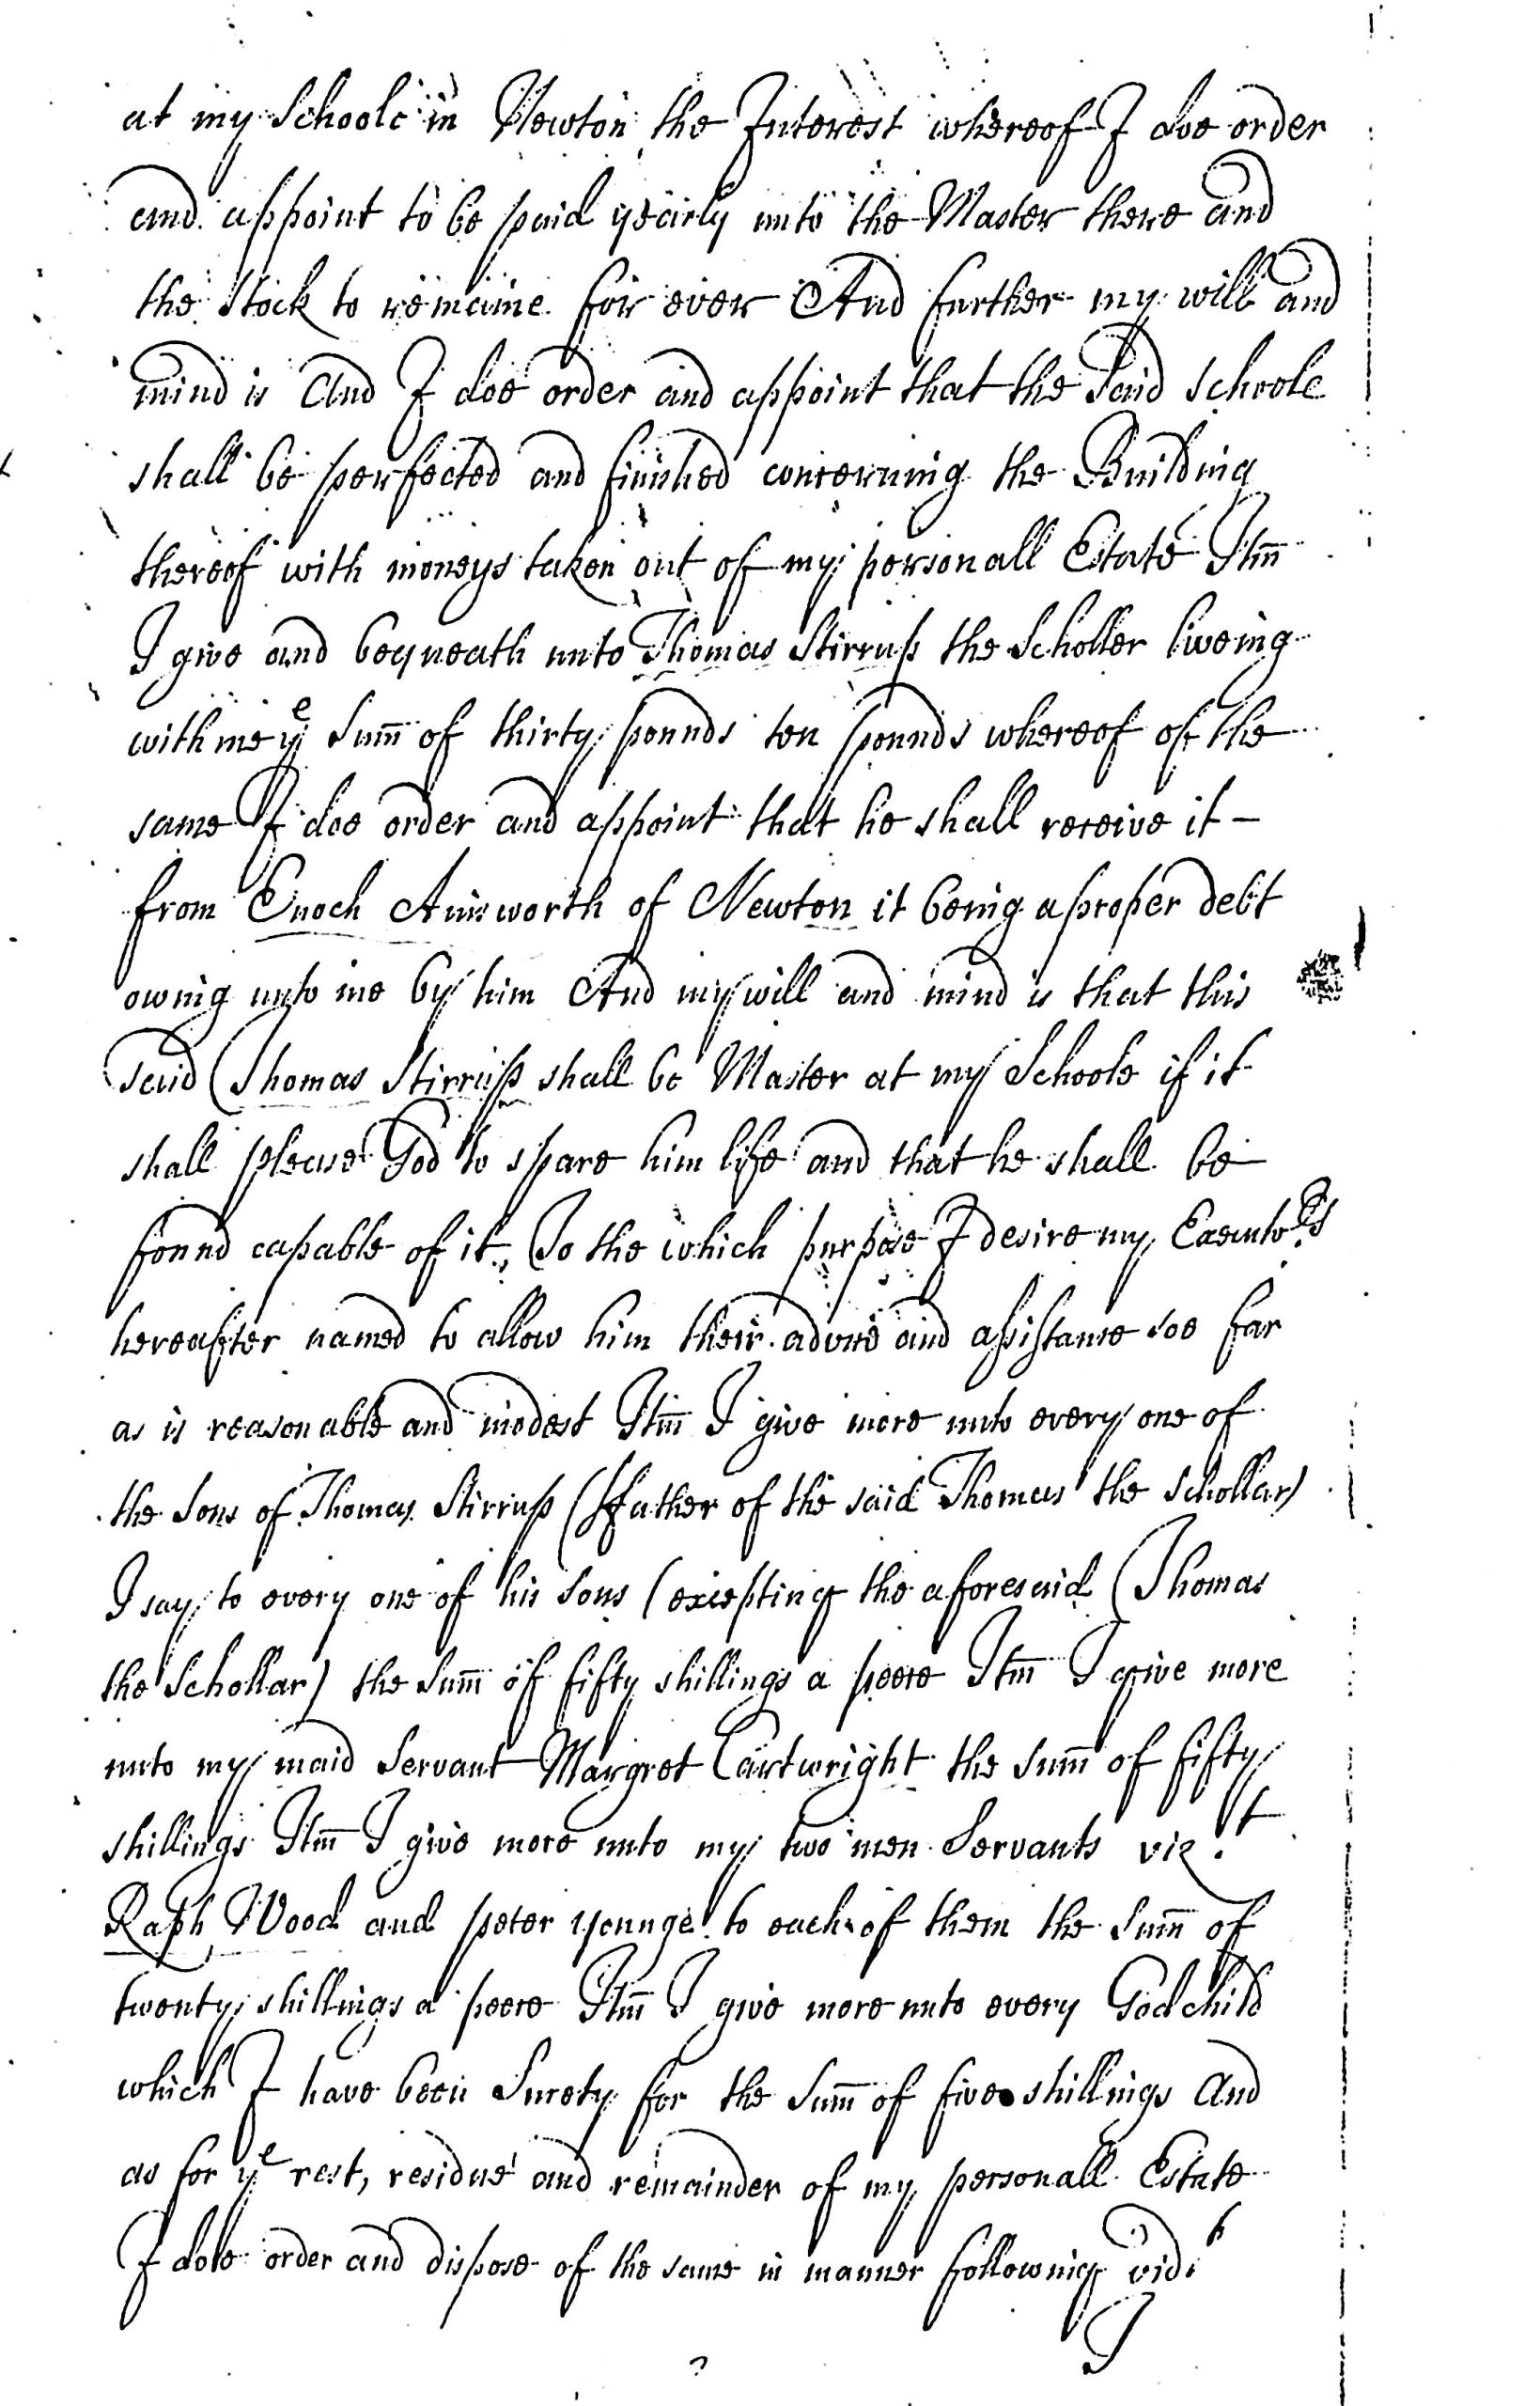 at my Schoole in Newton the Interest whereof I doe order
and appoint to be paid yearly unto the Master there and
the stock to remaine for ever And further my will and
mind is And I doe order and appoint that the said schoole
shall be perfected and finished concerning the Building
thereof with moneys taken out of my personall Estate Itm̄
I give and bequeath unto Thomas Stirrup the Scholler liveing
with me yᵉ Sum̄ of thirty pounds ten pounds whereof of the
same I doe order and appoint that he shall receive it –
from Enoch Ainsworth of Newton it being a proper debt
owing unto me by him And my will and mind is that this
said Thomas Stirrup shall be Master at my Schoole if it
shall please God to spare him life and that he shall be
found capable of it, To the which purpose I desire my Executoʳˢ
hereafter named to allow him their advice and assistance soe far
as is reasonable and modest Itm̄ I give more unto every one of
the Sons of Thomas Stirrup (ffather of the said Thomas the Schollar)
I say to every one of his Sons (excepting the aforesaid Thomas
the Schollar) the Sum̄ of fifty shillings a peece Itm̄ I give more
unto my maid Servant Margret Cartwright the Sum̄ of fifty
shillings Itm̄ I give more unto my two men Servants vizᵗ
Raph Wood and peter younge to each of them the Sum̄ of
twenty shillings a peece Itm̄ I give more unto every God child
which I have been Surety for the Sum̄ of five shillings And
as for yᵉ rest, residue and remainder of my personall Estate
I doe order and dispose of the same in manner following vidᵗ
I